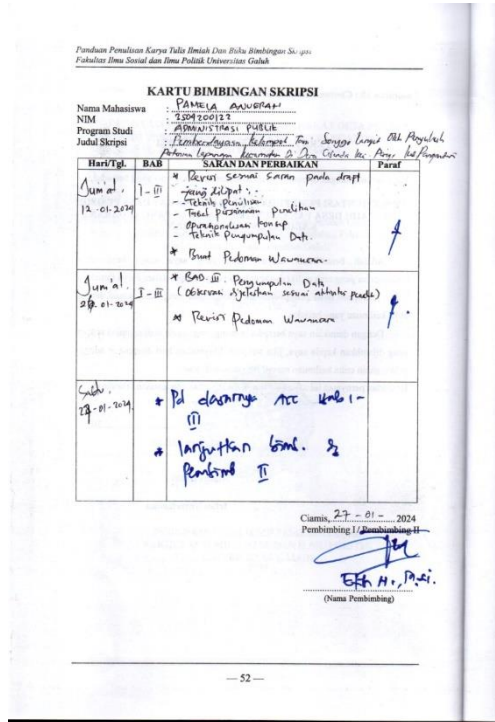 Panduan Penulisan Karya Tulis Ilmiah Dan Buku Bimbingan Skripsi
Fakultas Ilmu Sosial dan Ilmu Politik Universitas Galuh
KARTU BIMBINGAN SKRIPSI
Nama Mahasiswa : PAMELA ANUGRAH
NIM : 3509200122
Program Studi : ADMINISTRASI PUBLIK
Judul Skripsi : Pemberdayaan Kelompok Tani Oleh Penyuluh
Pertanian Lapangan Di Desa Kec.
Hari/Tgl. BAB SARAN DAN PERBAIKAN Paraf
Jum'at. I - III * Revisi sesuai saran pada draft
12-01-2024 yang dilipat :
- Teknik penulisan
- Tabel persamaan penelitian
- Operasionalisasi konsep
- Teknik Pengumpulan Data.
* Buat Pedoman Wawancara.
Jum'at. I - III * BAB. III. Pengumpulan Data
01-2024 (Observasi sesuai)
* Revisi Pedoman Wawancara
Sabtu. * Pd dasarnya ACC bab I -
-01-2024. III
* lanjutkan bimb. ke
Pembimb II
Ciamis, 27 - 01 - 2024
Pembimbing I / Pembimbing II
H., M.Si.
(Nama Pembimbing)
— 52 —